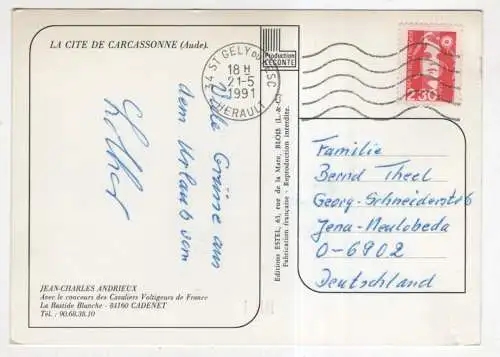 LA CITE DE CARCASSONNE (Aude).
Production
LECONTE
34 ST GELY DU FESC
18 H
21-5
1991
HERAULT
2,30
Viele Grüße aus
dem Urlaub vom
Lothar
Familie
Bernd Theel
Georg-Schneiderstr 6
Jena-Neulobeda
O-6902
Deutschland
Editions ESTEL, 63, rue de la Mare, BLOIS (L.-&-C.)
Fabrication française - Reproduction interdite.
JEAN-CHARLES ANDRIEUX
Avec le concours des Cavaliers Voltigeurs de France
La Bastide Blanche - 84160 CADENET
Tél. : 90.68.38.10